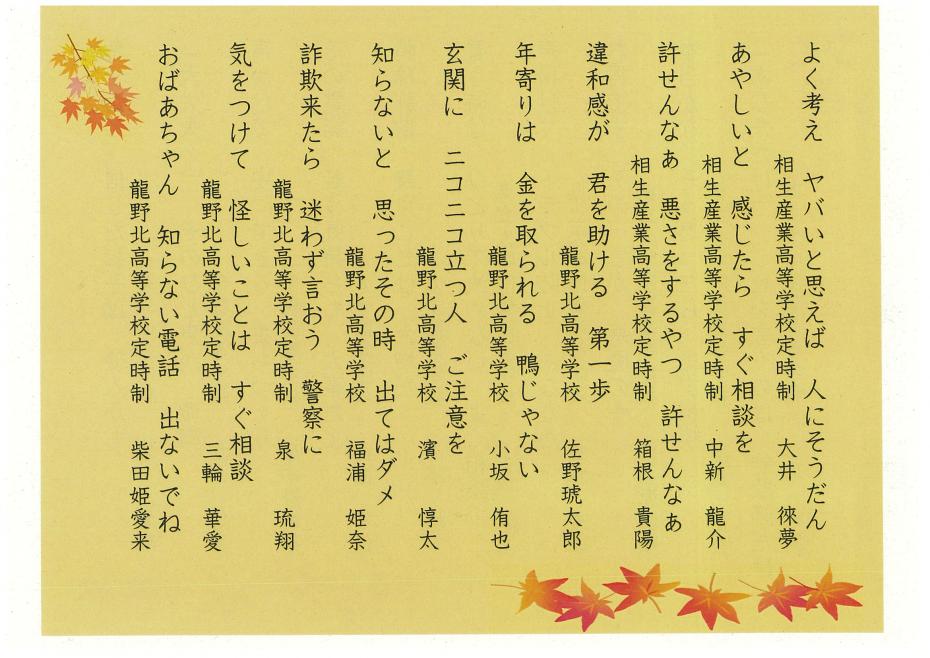 よく考え　ヤバいと思えば　人にそうだん
相生産業高等学校定時制　大井　徠夢
あやしいと　感じたら　すぐ相談を
相生産業高等学校定時制　中新　龍介
許せんなぁ　悪さをするやつ　許せんなぁ
相生産業高等学校定時制　箱根　貴陽
違和感が　君を助ける　第一歩
龍野北高等学校　佐野琥太郎
年寄りは　金を取られる　鴨じゃない
龍野北高等学校　小坂　侑也
玄関に　ニコニコ立つ人　ご注意を
龍野北高等学校　濱　惇太
知らないと　思ったその時　出てはダメ
龍野北高等学校　福浦　姫奈
詐欺来たら　迷わず言おう　警察に
龍野北高等学校定時制　泉　琉翔
気をつけて　怪しいことは　すぐ相談
龍野北高等学校定時制　三輪　華愛
おばあちゃん　知らない電話　出ないでね
龍野北高等学校定時制　柴田姫愛来